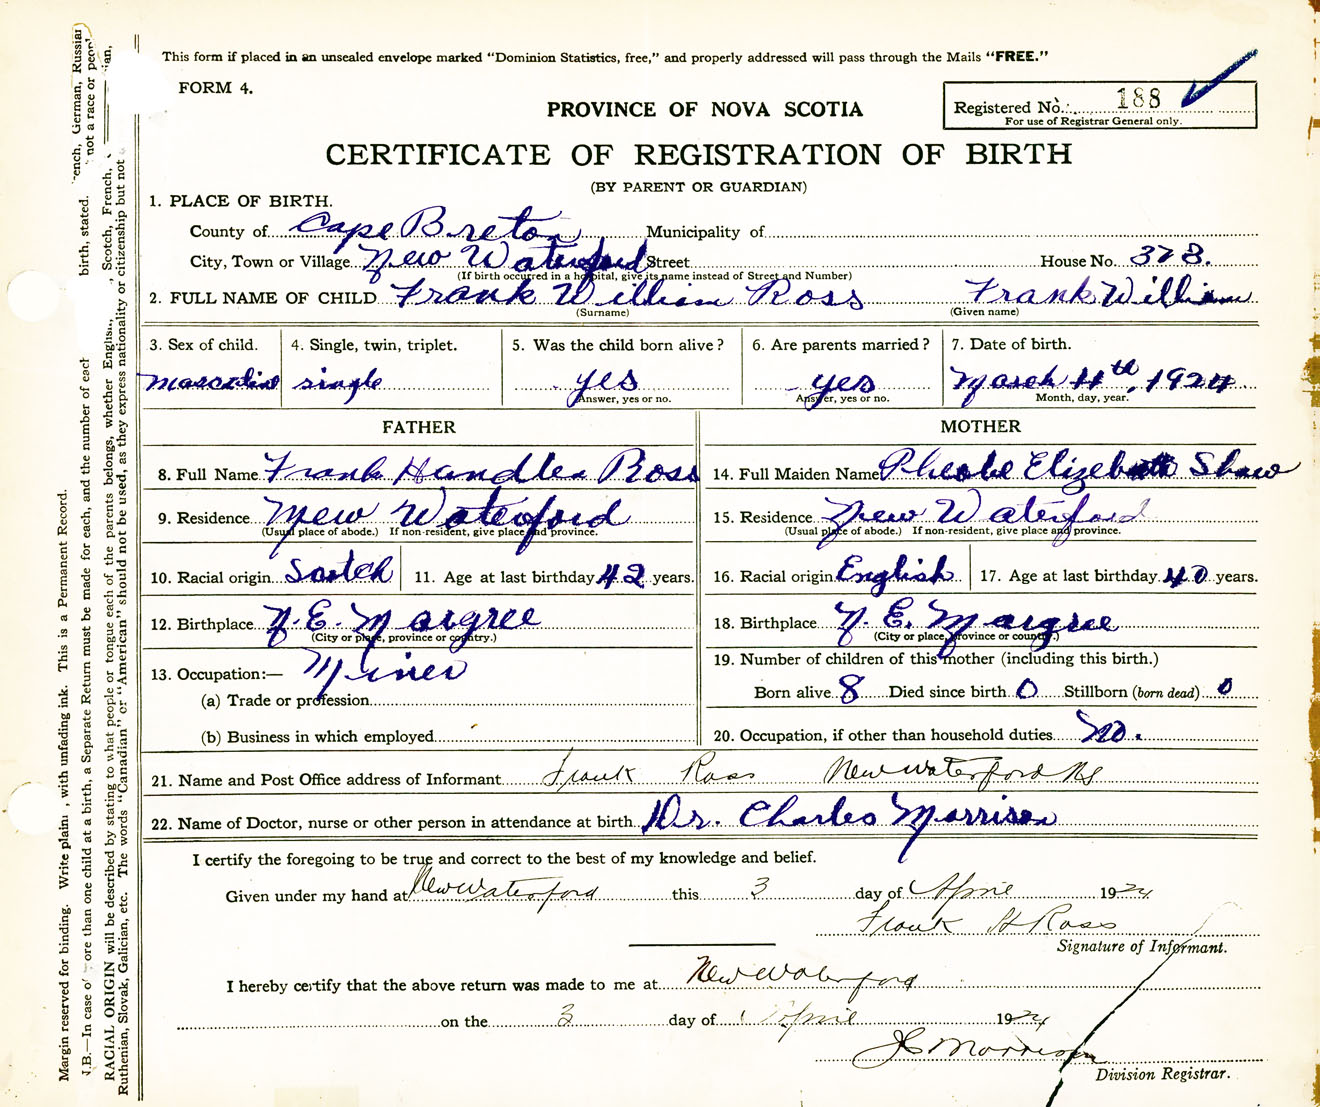 This form if placed in an unsealed envelope marked "Dominion Statistics, free," and properly addressed will pass through the Mails "FREE."
FORM 4.
Registered No. 188
For use of Registrar General only.
PROVINCE OF NOVA SCOTIA
CERTIFICATE OF REGISTRATION OF BIRTH
(BY PARENT OR GUARDIAN)
1. PLACE OF BIRTH.
County of Cape Breton Municipality of
City, Town or Village New Waterford Street House No. 378.
(If birth occurred in a hospital, give its name instead of Street and Number)
2. FULL NAME OF CHILD Frank William Ross Frank William
(Surname) (Given name)
3. Sex of child. 4. Single, twin, triplet. 5. Was the child born alive? 6. Are parents married? 7. Date of birth.
masculine single yes yes March 11th, 1924
Answer, yes or no. Answer, yes or no. Month, day, year.
FATHER MOTHER
8. Full Name Frank Handley Ross 14. Full Maiden Name Pheobe Elizebeth Shaw
9. Residence New Waterford 15. Residence New Waterford
(Usual place of abode.) If non-resident, give place and province. (Usual place of abode.) If non-resident, give place and province.
10. Racial origin Scotch 11. Age at last birthday 42 years. 16. Racial origin English 17. Age at last birthday 40 years.
12. Birthplace N. E. Margree 18. Birthplace N. E. Margree
(City or place, province or country.) (City or place, province or country.)
13. Occupation:— Miner 19. Number of children of this mother (including this birth.)
(a) Trade or profession Born alive 8 Died since birth 0 Stillborn (born dead) 0
(b) Business in which employed 20. Occupation, if other than household duties No.
21. Name and Post Office address of Informant Frank Ross New Waterford NS
22. Name of Doctor, nurse or other person in attendance at birth Dr. Charles Morrison
I certify the foregoing to be true and correct to the best of my knowledge and belief.
Given under my hand at New Waterford this 3 day of April 1924
Frank H Ross
Signature of Informant.
I hereby certify that the above return was made to me at New Waterford
on the 3 day of April 1924
J C Morrison
Division Registrar.
Margin reserved for binding. Write plain, with unfading ink. This is a Permanent Record.
J.B.—In case o ore than one child at a birth, a Separate Return must be made for each, and the number of each birth, stated.
RACIAL ORIGIN will be described by stating to what people or tongue each of the parents belongs, whether English, Scotch, French,
Ruthenian, Slovak, Galician, etc. The words "Canadian" or "American" should not be used, as they express nationality or citizenship but not
ench, German, Russian
not a race or peopl